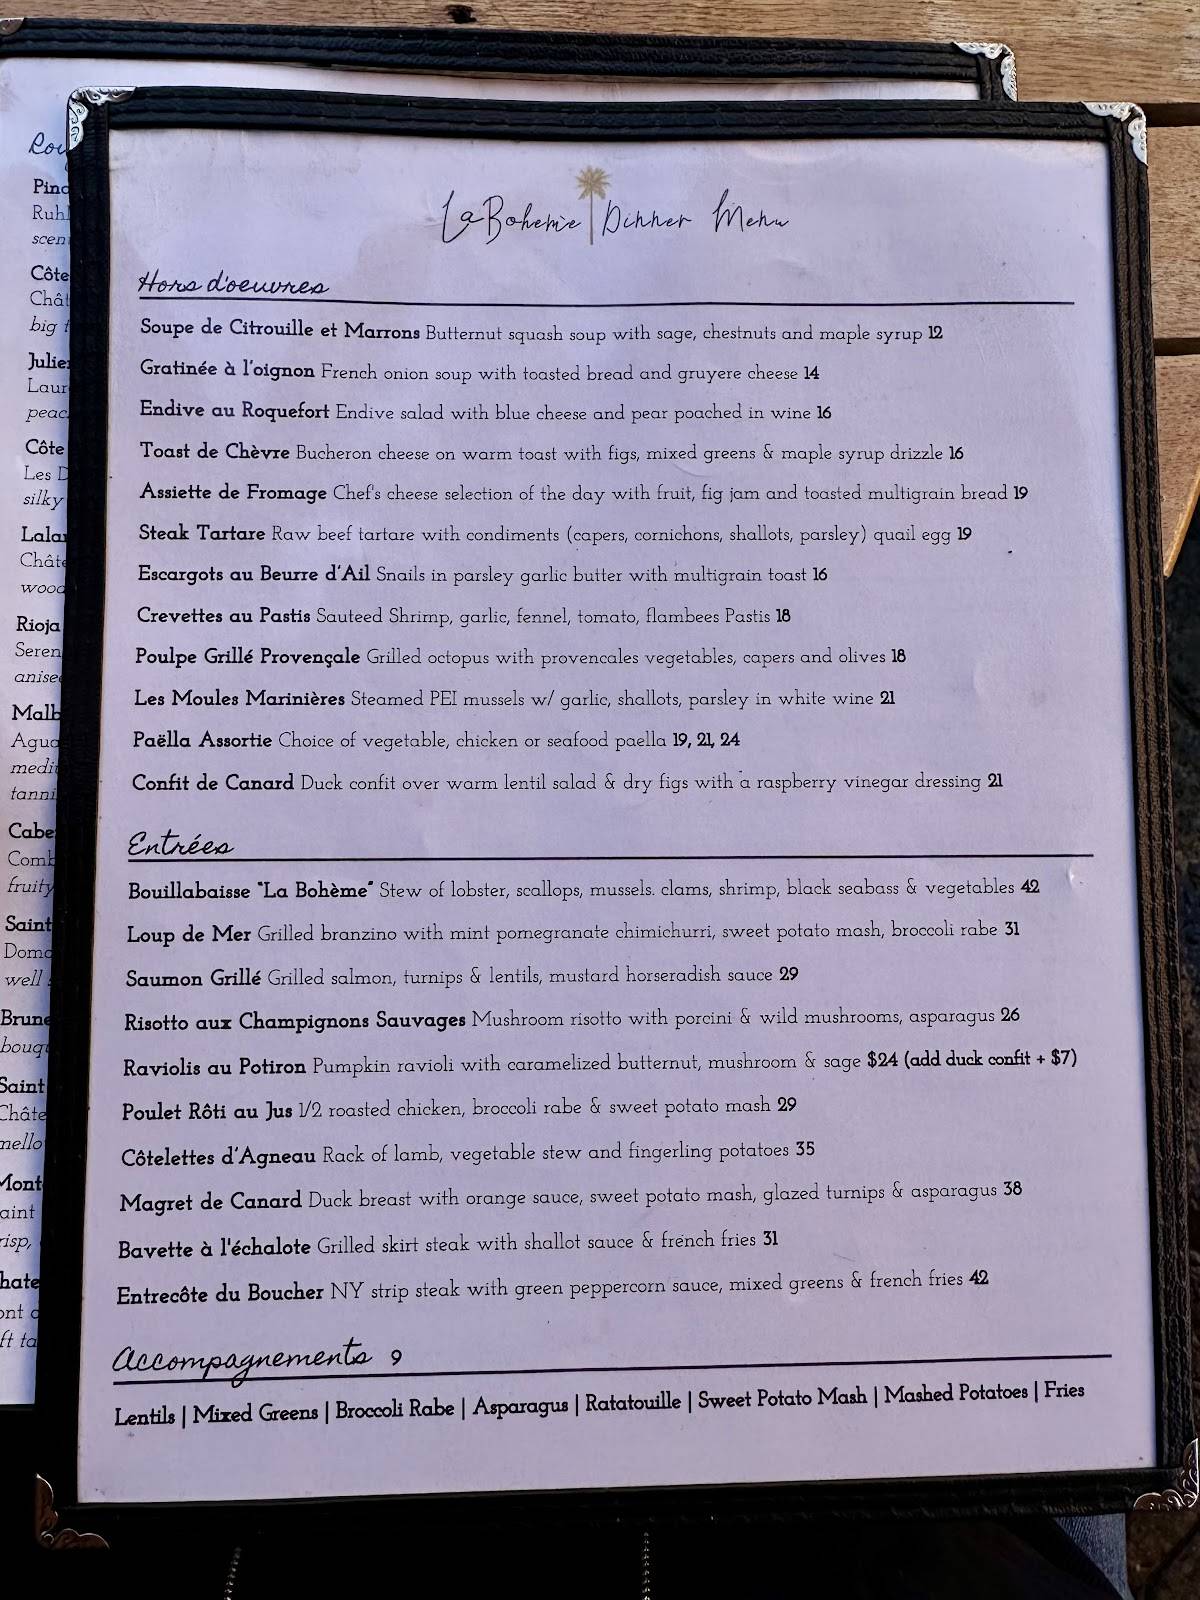 La Boheme Dinner Menu
Hors d'oeuvres
Soupe de Citrouille et Marrons Butternut squash soup with sage, chestnuts and maple syrup 12
Gratinée à l'oignon French onion soup with toasted bread and gruyere cheese 14
Endive au Roquefort Endive salad with blue cheese and pear poached in wine 16
Toast de Chèvre Bucheron cheese on warm toast with figs, mixed greens & maple syrup drizzle 16
Assiette de Fromage Chef's cheese selection of the day with fruit, fig jam and toasted multigrain bread 19
Steak Tartare Raw beef tartare with condiments (capers, cornichons, shallots, parsley) quail egg 19
Escargots au Beurre d'Ail Snails in parsley garlic butter with multigrain toast 16
Crevettes au Pastis Sauteed Shrimp, garlic, fennel, tomato, flambees Pastis 18
Poulpe Grillé Provençale Grilled octopus with provencales vegetables, capers and olives 18
Les Moules Marinières Steamed PEI mussels w/ garlic, shallots, parsley in white wine 21
Paëlla Assortie Choice of vegetable, chicken or seafood paella 19, 21, 24
Confit de Canard Duck confit over warm lentil salad & dry figs with a raspberry vinegar dressing 21
Entrées
Bouillabaisse "La Bohème" Stew of lobster, scallops, mussels. clams, shrimp, black seabass & vegetables 42
Loup de Mer Grilled branzino with mint pomegranate chimichurri, sweet potato mash, broccoli rabe 31
Saumon Grillé Grilled salmon, turnips & lentils, mustard horseradish sauce 29
Risotto aux Champignons Sauvages Mushroom risotto with porcini & wild mushrooms, asparagus 26
Raviolis au Potiron Pumpkin ravioli with caramelized butternut, mushroom & sage $24 (add duck confit + $7)
Poulet Rôti au Jus 1/2 roasted chicken, broccoli rabe & sweet potato mash 29
Côtelettes d'Agneau Rack of lamb, vegetable stew and fingerling potatoes 35
Magret de Canard Duck breast with orange sauce, sweet potato mash, glazed turnips & asparagus 38
Bavette à l'échalote Grilled skirt steak with shallot sauce & french fries 31
Entrecôte du Boucher NY strip steak with green peppercorn sauce, mixed greens & french fries 42
Accompagnements 9
Lentils | Mixed Greens | Broccoli Rabe | Asparagus | Ratatouille | Sweet Potato Mash | Mashed Potatoes | Fries
Côte
big
Côte
Les
silky
Rioja
Saint
well
Saint